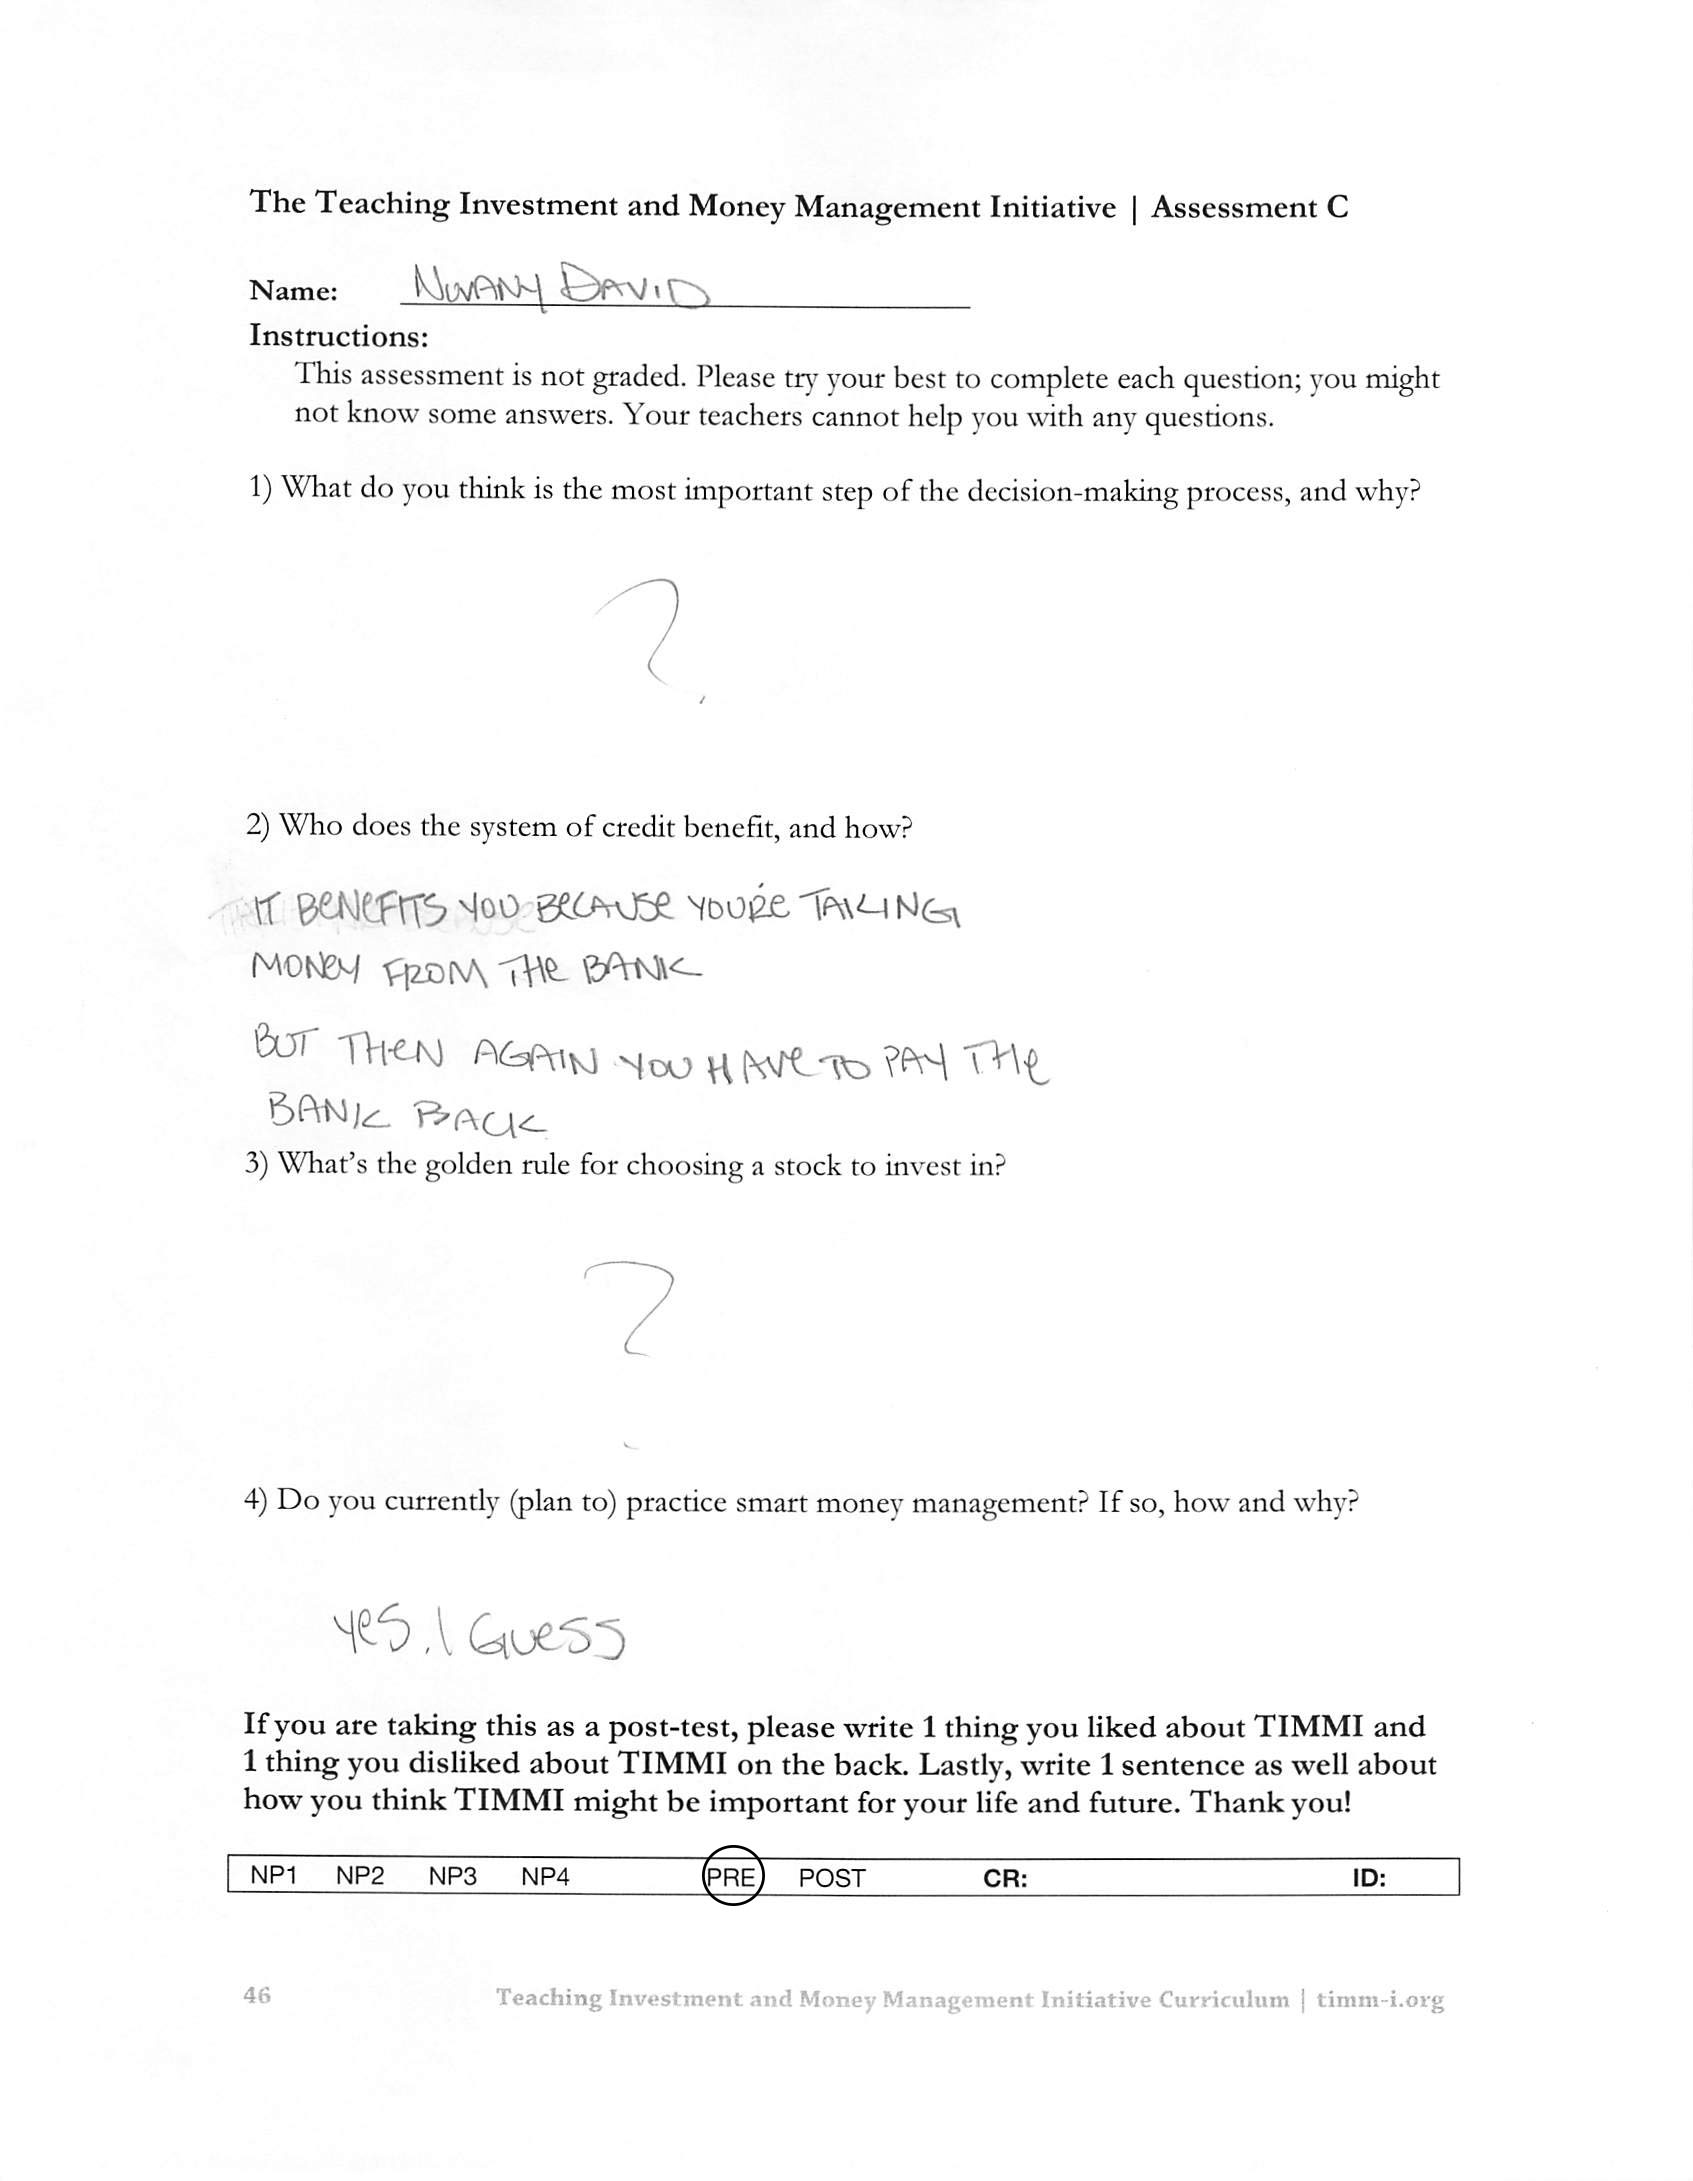 The Teaching Investment and Money Management Initiative | Assessment C
Name: NWANY DAVID
Instructions:
This assessment is not graded. Please try your best to complete each question; you might
not know some answers. Your teachers cannot help you with any questions.
1) What do you think is the most important step of the decision-making process, and why?
?
2) Who does the system of credit benefit, and how?
IT BENEFITS YOU BECAUSE YOU'RE TAKING
MONEY FROM THE BANK
BUT THEN AGAIN YOU HAVE TO PAY THE
BANK BACK
3) What's the golden rule for choosing a stock to invest in?
?
4) Do you currently (plan to) practice smart money management? If so, how and why?
Yes, I Guess
If you are taking this as a post-test, please write 1 thing you liked about TIMMI and
1 thing you disliked about TIMMI on the back. Lastly, write 1 sentence as well about
how you think TIMMI might be important for your life and future. Thank you!
NP1 NP2 NP3 NP4 PRE POST CR: ID:
46 Teaching Investment and Money Management Initiative Curriculum | timm-i.org